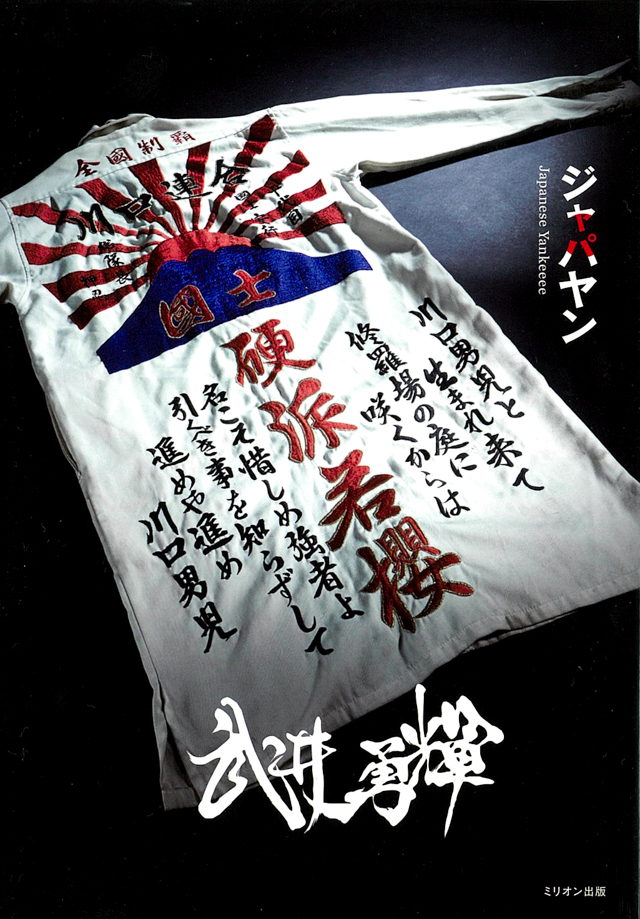 ジャパヤン
Japanese Yankeeee
全國制覇
川口連合
國士
硬派若櫻
川口男児と
生まれ来て
修羅場の庭に
咲くからは
名こそ惜しめ強者よ
引くべき事を知らずして
進めや進め
川口男児
武井勇輝
ミリオン出版